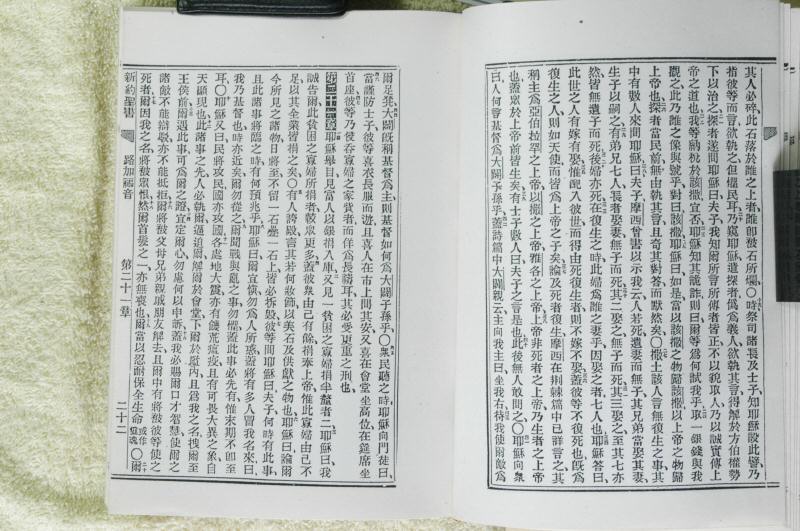 其人必碎此石落於誰之上者誰卽被石所壓○時祭司諸長及士子知耶穌設此譬乃
指彼等而言欲執之但懼民耳乃窺耶穌遣探者僞爲義人欲執其言得解於方伯權勢
下以治之探者遂問耶穌曰夫子我知爾所言所傳者皆正不以貌取人乃以誠實傳上
帝之道也我等納稅於該撒宜否耶穌知其詭詐則曰爾等爲何試我乎取一銀錢與我
觀之此乃誰之像與號乎對曰該撒耶穌曰如是當以該撒之物歸該撒以上帝之物歸
上帝也探者當民前無由執其言且奇其對答而默然矣○撒土該人言無復生之事其
中有數人來問耶穌曰夫子摩西曾書以示我云人若死遺妻而無子其兄弟當娶其妻
生子以嗣之有弟兄七人長者娶妻無子而死其二娶之無子而死其三娶之至其七亦
然皆無遺子而死後婦亦死在復生之時此婦爲誰之妻乎因娶之者七人也耶穌答曰
此世之人有嫁有娶惟配入彼世而得由死復生者則不嫁不娶蓋彼等不復死也旣爲
復生之人則如天使而皆爲上帝之子矣論及死者復生摩西在荆棘篇中已詳言之其
稱主爲亞伯拉罕之上帝以撒之上帝雅各之上帝上帝非死者之上帝乃生者之上帝
也蓋衆於上帝前皆生矣有士子數人曰夫子之言是也此後無人敢問之○耶穌向衆
曰人何言基督爲大闢子孫乎蓋詩篇中大闢親云主向我主曰坐我右待我使爾敵爲
爾足凳大闢旣稱基督爲主則基督如何爲大闢子孫乎○衆民聽之時耶穌向門徒曰
當謹防士子彼等喜衣長服而遊且喜人在市上問其安又喜在會堂坐高位在筵席坐
首座彼等乃侵吞寡婦之家貲者而佯爲長禱耳其必受更重之刑也
第二十一章耶穌舉目見富人以銀捐入庫又見一貧困之寡婦捐半釐者二耶穌曰我
誠告爾此貧困之寡婦所捐者較衆更多蓋彼衆由己有餘捐奉上帝惟此寡婦由己不
足以其全業皆捐之矣○有人誇殿言其若何妝飾以美石及供獻之物也耶穌曰論爾
今所見之諸物日將至不留一石疊一石上皆必拆毀彼等問耶穌曰夫子何時有此事
且此諸事將臨之時有何預兆乎耶穌曰爾宜愼勿爲人所惑蓋將有多人冒我名來曰
我乃基督也時亦近矣爾勿從之爾聞戰與亂之事勿懼蓋此事必先有惟末期不卽至
耳○耶穌又曰民將攻民國亦攻國各處地大震亦有饑荒瘟疫且有可畏大異之象自
天顯現也此諸事之先人必執爾逼迫爾解爾於會堂下爾於監內且爲我之名拽爾至
王侯前爾遇此事可爲爾之證宜定爾心勿慮何以申訴蓋我必賜爾口才智慧使爾之
諸敵不能辯駁亦不能抵拒爾將被父母兄弟親戚朋友解去且爾中有將被彼等使之
死者爾因我之名將被衆恨然爾首髮之一亦無喪也爾當以忍耐保全生命或作靈魂○爾
新約聖書 路加福音 第二十一章 二十二